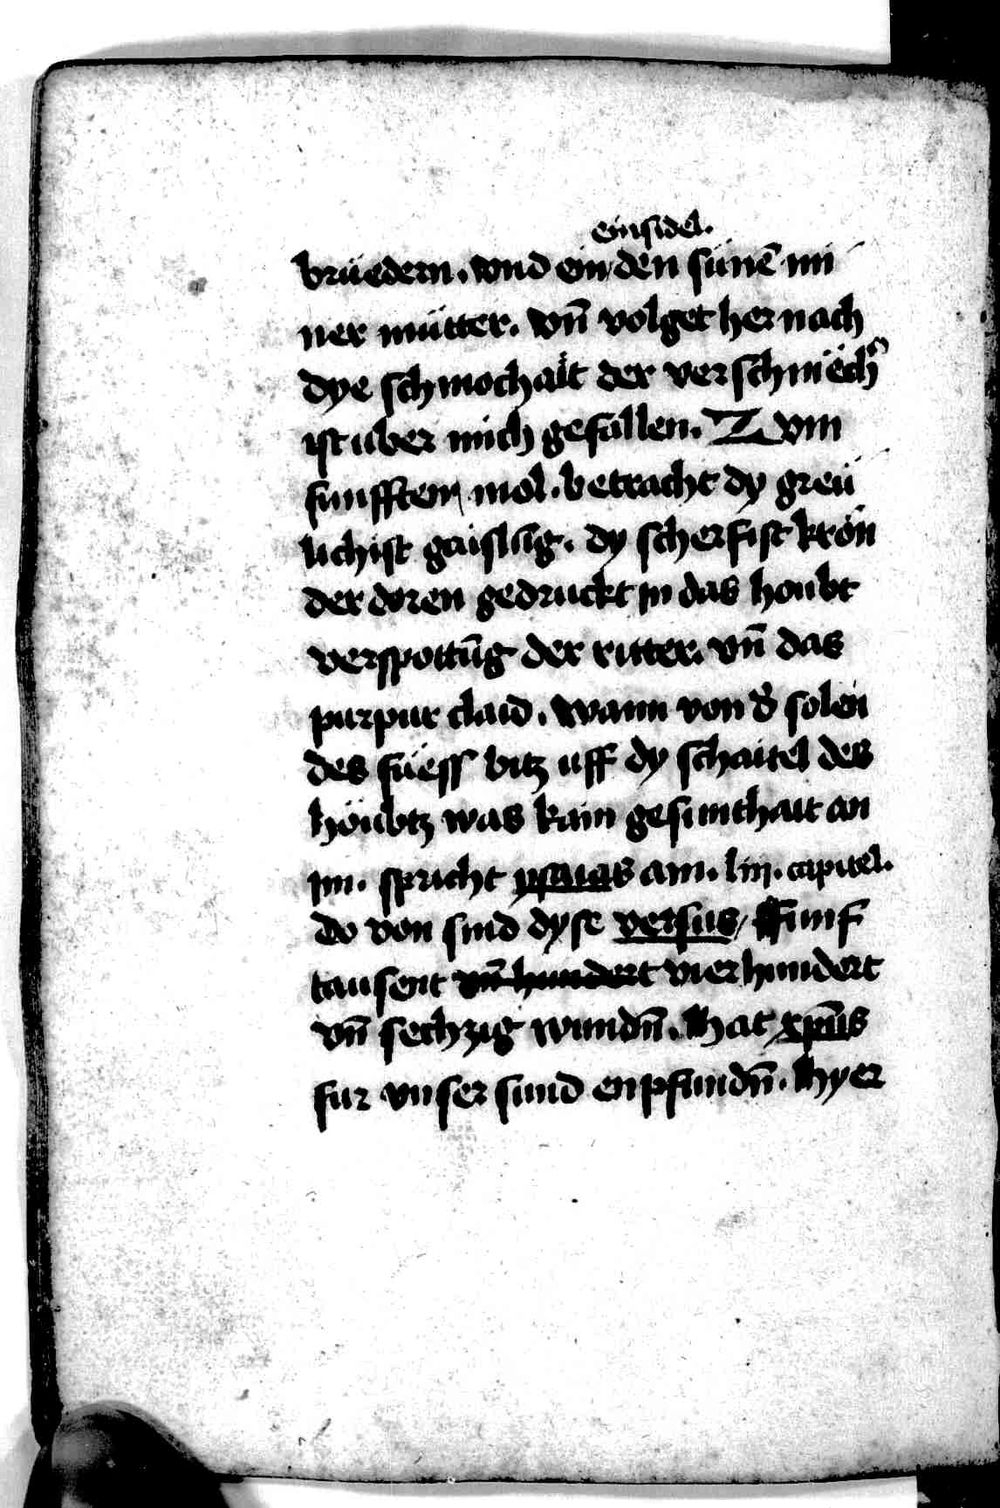 einsidel.
brüedern. vnd ein den sünē mi
ner mütter. vn̄ volget her nach
dye schmochait der verschmech
ist uber mich gefallen. Zvm
funfften mol. betracht dy greü
lichist gaislūg. dy scherfist krön
der doren gedruckt jn das houbt
verspottūg der ritter. vn̄ das
purpur claid. wann von d' solen
des füess bitz uff dy schaitel des
höubtz was kain gesunthait an
im. spricht ysaias am. liij. capitel.
Do von sind dyse versus / Funf
tausent vn̄ hundert vierhundert
vn̄ sechzig wundn̄. hat xp̄us
fur vnser sund enpfundn̄. hyer